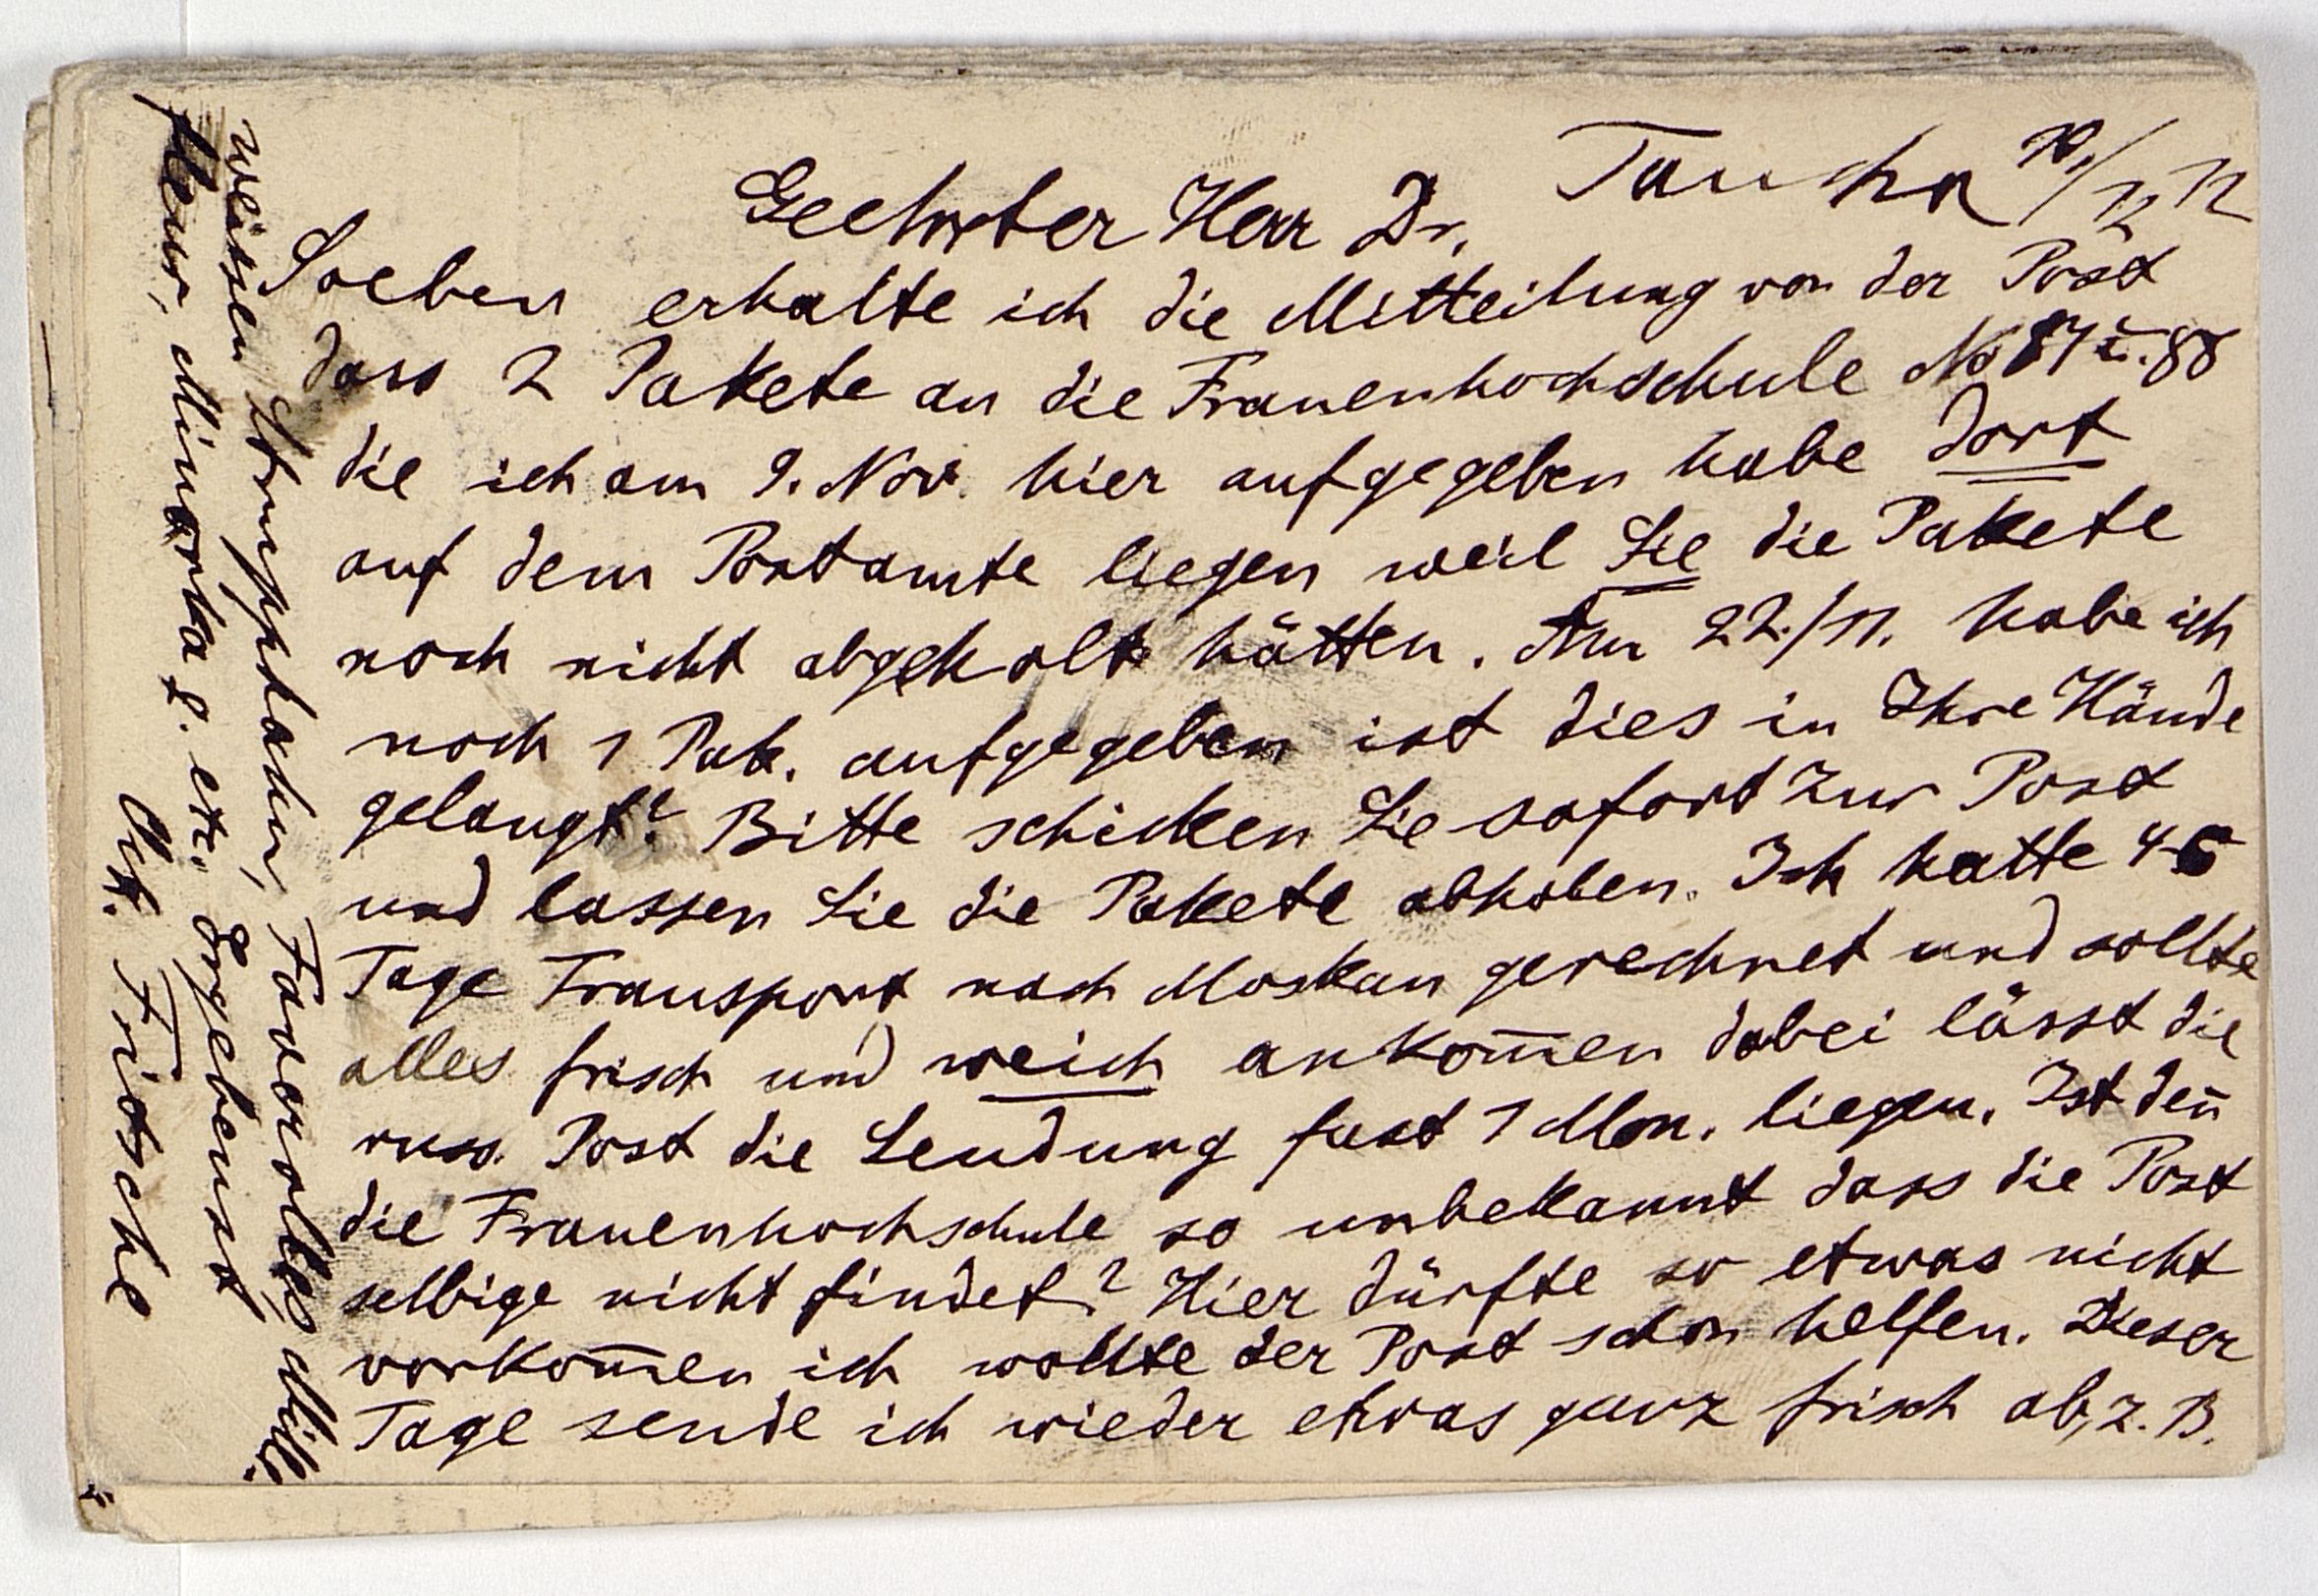 Taucha 10/12 12
Geehrter Herr Dr.
Soeben erhalte ich die Mitteilung von der Post
dass 2 Pakete an die Frauenhochschule No 87 u. 88
die ich am 9. Nov. hier aufgegeben habe dort
auf dem Postamte liegen weil Sie die Pakete
noch nicht abgeholt hätten. Am 22./11. habe ich
noch 1 Pak. aufgegeben ist dies in Ihre Hände
gelangt? Bitte schicken Sie sofort zur Post
und lassen Sie die Pakete abholen. Ich hatte 4-5
Tage Transport nach Moskau gerechnet und sollte
alles frisch und weich ankom̅en dabei lässt die
russ. Post die Sendung fast 1 Mon. liegen. Ist den̅
die Frauenhochschule so unbekannt dass die Post
selbige nicht findet? Hier dürfte so etwas nicht
vorkom̅en ich wollte der Post schon helfen. Dieser
Tage sende ich wieder etwas ganz frisch ab, z. B.
weissen Favorolles
fleur, Minorka etc. Ergebenst
Fritsche